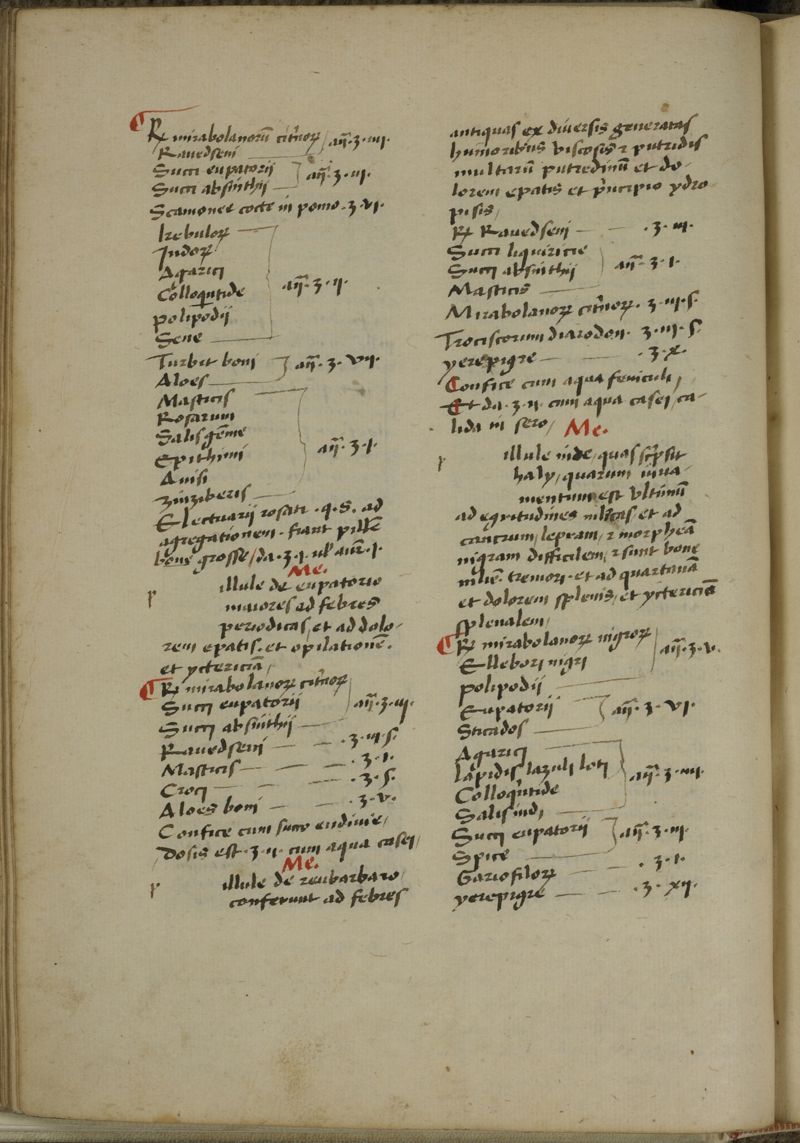 ℞ mirabolanorū citrinoꝝ / añ. ʒ. iiii.
Rauedseni
Succi eupatorij
Succi absinthij añ. ʒ. iii.
Scamonee cocte in pomo. ʒ. vi.
kebuloꝝ
Indoꝝ
Agarici
Colloquītide añ. ʒ. ii.
polipodij
Sene
Turbit boni
Aloes añ. ʒ. vii.
Masticis
Rosarum
Salis gēme
Epithimi añ. ʒ. i.
Anisi
zinziberis
Electuarij rosati . q. s. ad
agregationem . fiant pillule
bene grosse / da . ʒ. i. ul' aur. i.
Me.
p illule de eupatorio
maiores ad febres
periodicas, et ad dolo-
rem epatis. et opilationē.
et yctericiā,
℞ mirabolanoꝝ citrinoꝝ
Succi eupatorij añ. ʒ. iii.
Succi absinthij
Rauedseni . ʒ. iii. s.
Masticis . ʒ. i.
Croci . ʒ. s.
Aloes boni . ʒ. v.
Confice cum succo endiuie,
Dosis est . ʒ. ii. cum aqua casei,
Me.
p illule de reubarbaro,
conferunt ad febres
antiquas ex diuersis generatas
humoribus viscosis ⁊ putridis
multarū putredinū et do-
lorem epatis et principio ydro
pisis,
℞ Rauedseni . ʒ. iii.
Succi liquiricie
Succi absinthij añ. ʒ. i.
Masticis
Mirabolanoꝝ citrinoꝝ. ʒ. iii. s.
Trociscorum diarodon. ʒ. iii. s.
yerepigre . ʒ. x.
Confice cum aqua feniculi,
Et da . ʒ. ii. cum aqua casei, ca-
lida in sero, Me.
p illule inde, quas scripsit
haly, quarum iuua-
mentum est vltimū
ad egritudines nigras et ad
cancrum, lepram, ⁊ morpheā
nigram difficilem, ⁊ sunt bone
tremori . et ad quartanā
et dolorem splenis, et yctericiā
splenalem,
℞ mirabolanoꝝ nigroꝝ
Ellebori nigri añ. ʒ. v.
polipodij
Eupatorij
Sticados añ. ʒ. vi.
Agarici
lapidis lazuli loti
Colloquītide añ. ʒ. iiii.
Salis indi
Succi eupatorij
Spice añ. ʒ. iii.
Gariofiloꝝ . ʒ. i.
yerepigre . ʒ. xii.